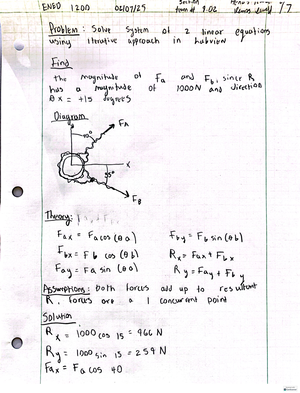 ENGD 1200 02/07/25 Section Team # 9.02 7/7
Problem: Solve System of 2 linear equations
using iterative approach in Labview
Find
the magnitude of Fa and Fb, since R
has a magnitude of 1000N and direction
θx = +15 degrees
Diagram
FA
x
35°
FB
Theory:
Fax = Fa cos(θa) Fby = Fb sin(θb)
Fbx = Fb cos(θb) Rx = Fax + Fbx
Fay = Fa sin(θa) Ry = Fay + Fby
Assumptions: both forces add up to resultant
R, forces are a 1 concurrent point
Solution
Rx = 1000 cos 15 = 966 N
Ry = 1000 sin 15 = 259 N
Fax = Fa cos 40